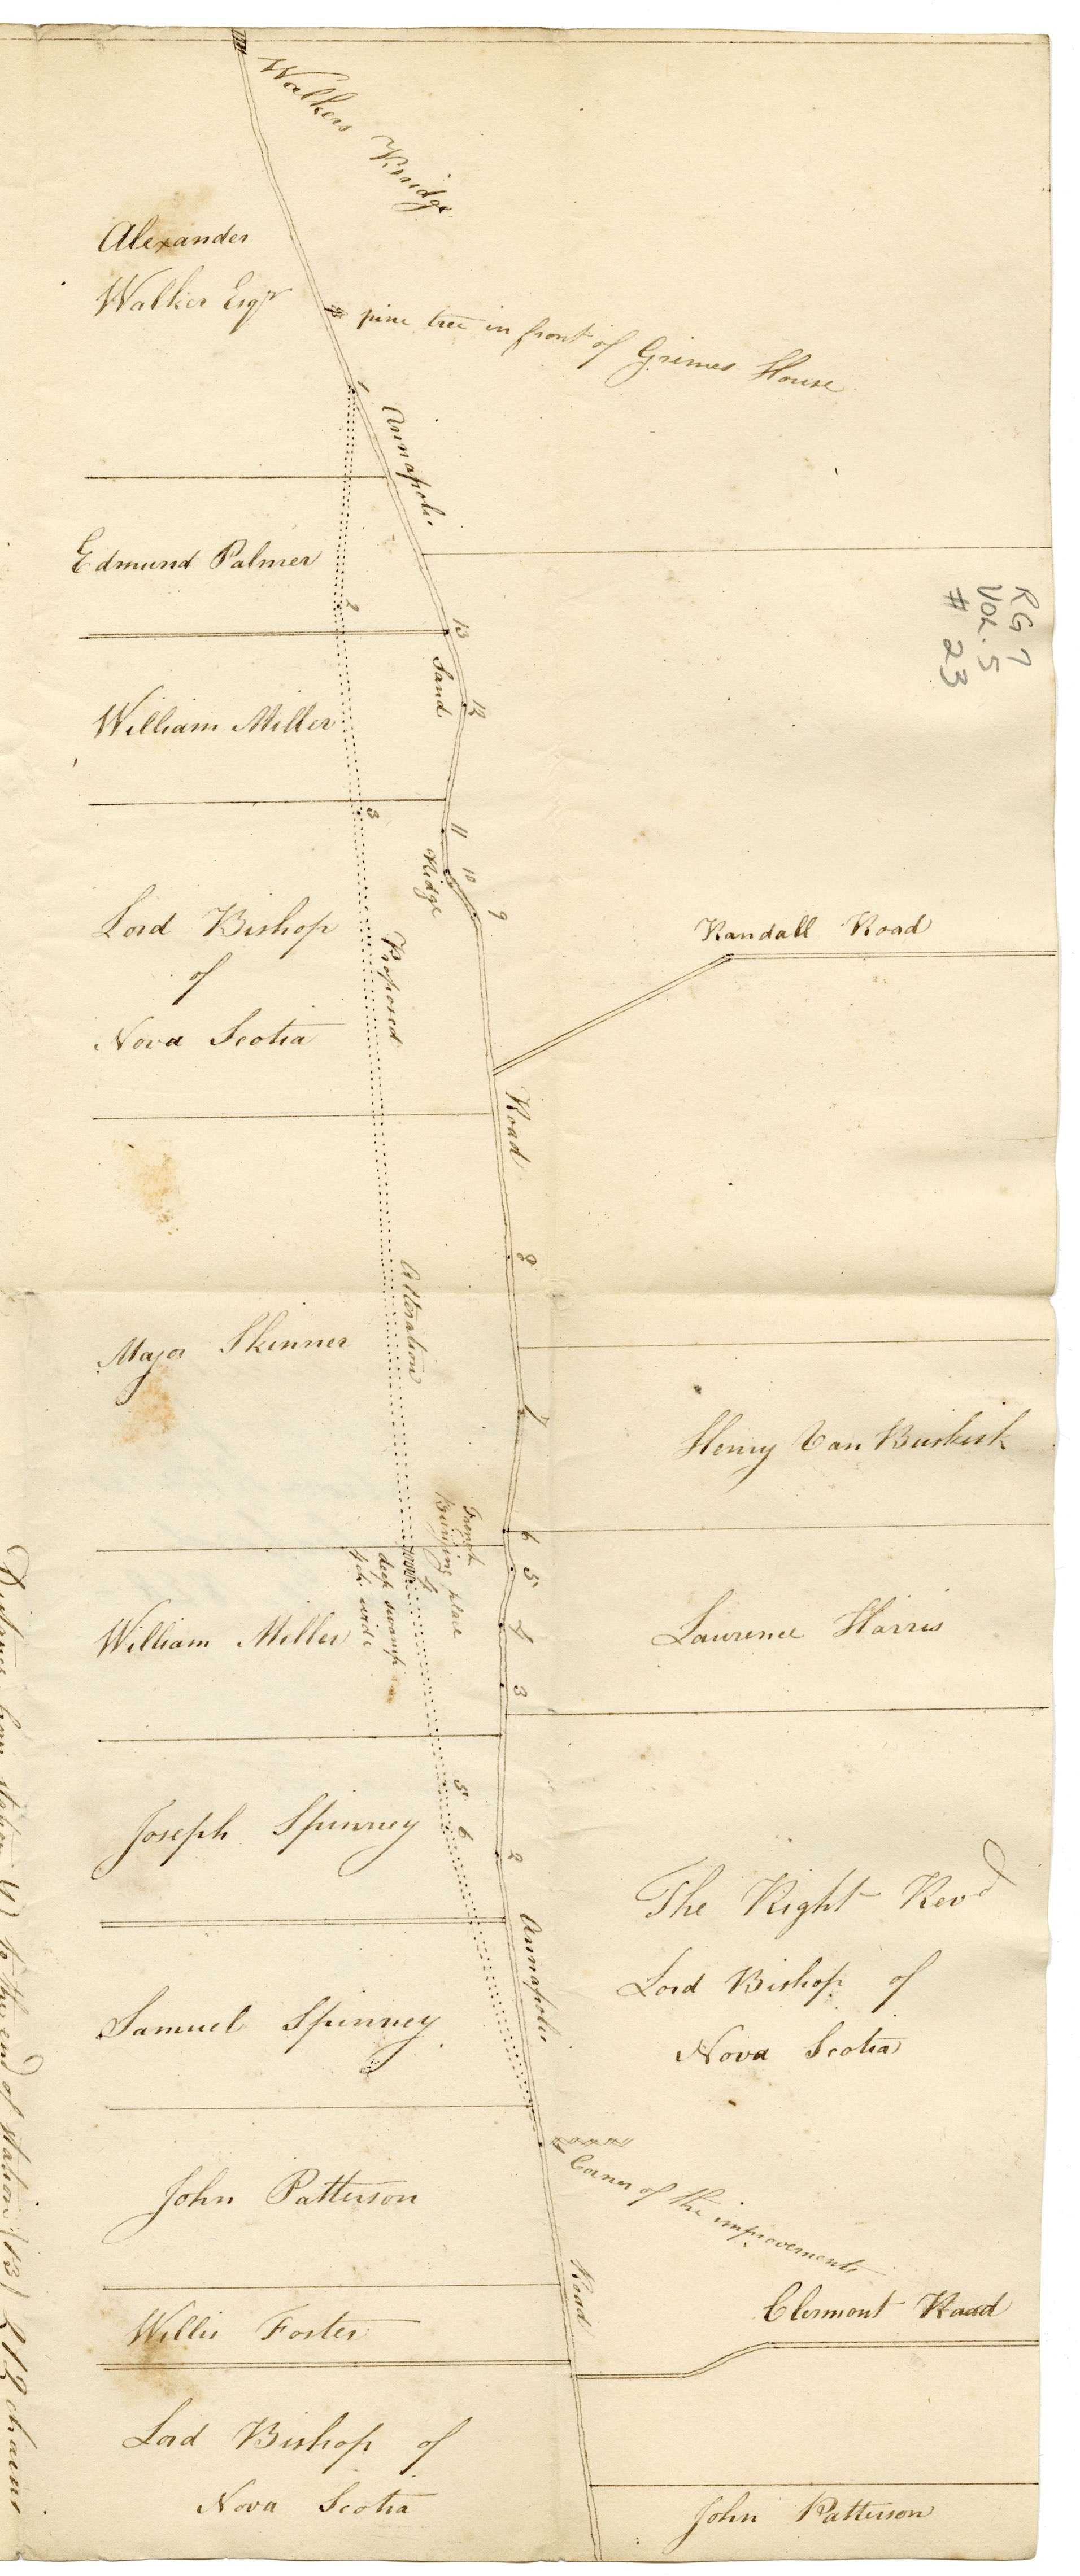 Walkers Bridge
Alexander
Walker Esqr
pine tree in front of Grimes House
1
Annapolis
Edmund Palmer
2
13
Sand
12
William Miller
3
11
10
Ridge
9
RG 7
VOL. 5
# 23
Lord Bishop
of
Nova Scotia
Proposed
Randall Road
Road
8
Alteration
Major Skinner
7
Henry Van Buskirk
French
Burying place
6
5
4
deep swamp
4 ch. wide
4
William Miller
Lawrence Harris
3
5
6
Joseph Spinney
2
The Right Revd
Lord Bishop of
Nova Scotia
Annapolis
Samuel Spinney
Corner of the improvements
John Patterson
Road
Clermont Road
Willis Foster
Lord Bishop of
Nova Scotia
John Patterson
Distance from station 1 to the end of station (13) 212 chains